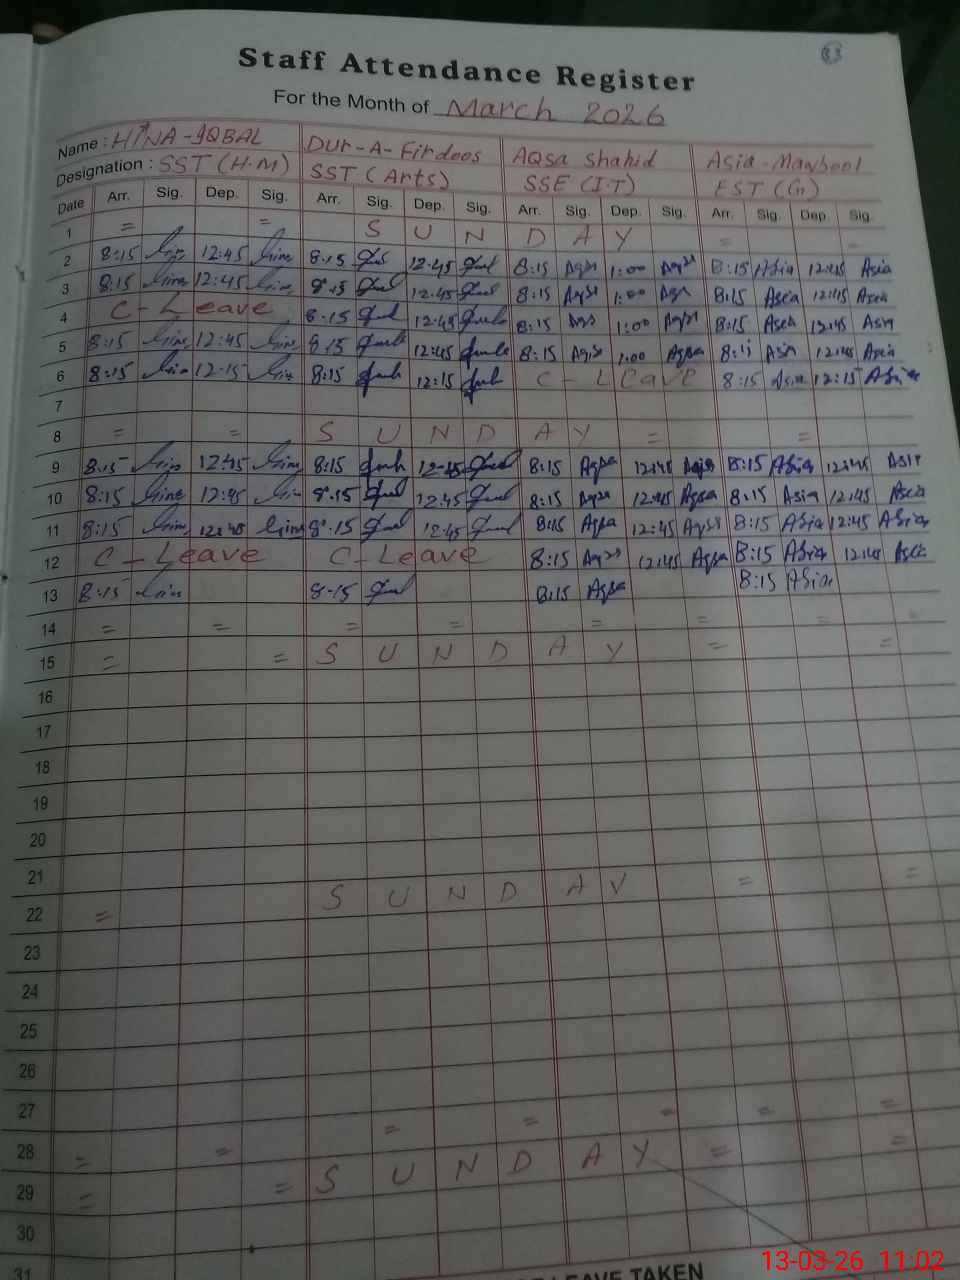 33
Staff Attendance Register
For the Month of March 2026
Name: HINA-IQBAL Dur-A-Firdoos Aqsa Shahid Asia-Maqbool
Designation: SST (H.M) SST (Arts) SSE (I.T) EST (G)
Date Arr. Sig. Dep. Sig. Arr. Sig. Dep. Sig. Arr. Sig. Dep. Sig. Arr. Sig. Dep. Sig.
1 = = S U N D A Y = =
2 8:15 12:45 8:15 12:45 8:15 Aqsa 1:00 Aqsa 8:15 Asia 12:45 Asia
3 8:15 12:45 8:15 12:45 8:15 Aqsa 1:00 Aqsa 8:15 Asia 12:45 Asia
4 C-Leave 8:15 12:45 8:15 Aqsa 1:00 Aqsa 8:15 Asia 12:45 Asia
5 8:15 12:45 8:15 12:45 8:15 Aqsa 1:00 Aqsa 8:15 Asia 12:45 Asia
6 8:15 12:15 8:15 12:15 C-Leave 8:15 Asia 12:15 Asia
7
8 = = S U N D A Y = =
9 8:15 12:45 8:15 12:45 8:15 Aqsa 12:45 Aqsa 8:15 Asia 12:45 Asia
10 8:15 12:45 8:15 12:45 8:15 Aqsa 12:45 Aqsa 8:15 Asia 12:45 Asia
11 8:15 12:45 8:15 12:45 8:15 Aqsa 12:45 Aqsa 8:15 Asia 12:45 Asia
12 C-Leave C-Leave 8:15 Aqsa 12:45 Aqsa 8:15 Asia 12:45 Asia
13 8:15 8:15 8:15 Aqsa 8:15 Asia
14 = = = = = = = =
15 = = S U N D A Y = =
16
17
18
19
20
21
22 = S U N D A Y = =
23
24
25
26
27
28 = = = = = = =
29 = = S U N D A Y = =
30
31
LEAVE TAKEN
13-03-26 11:02